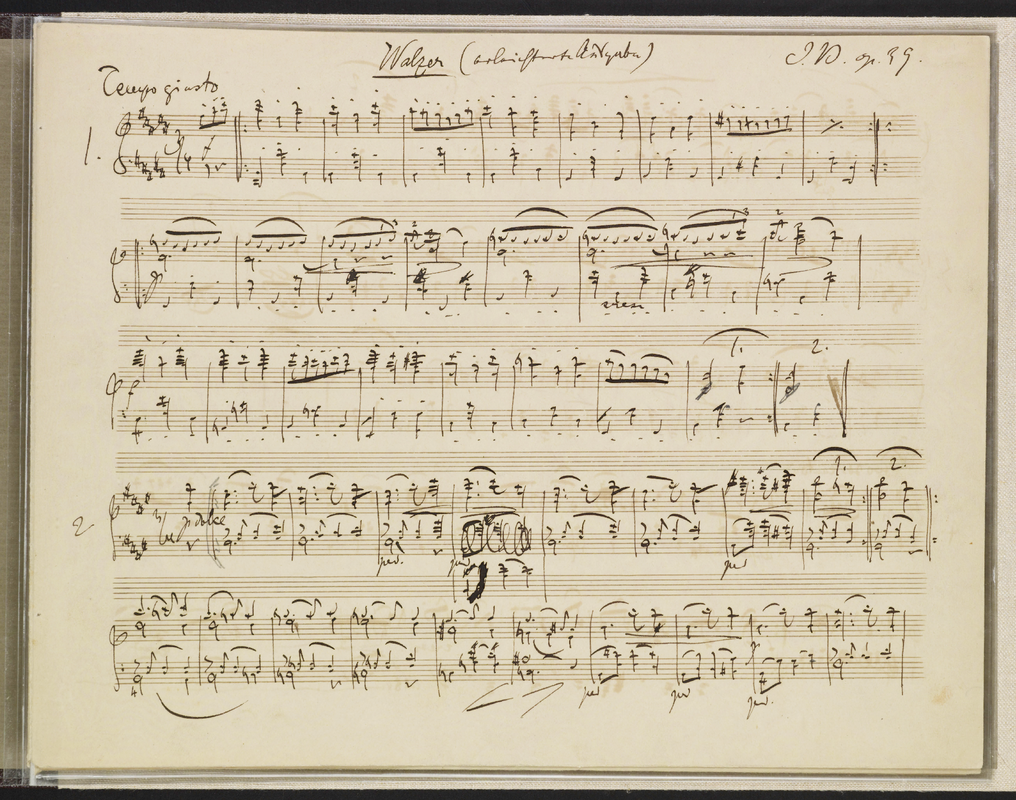 Walzer (erleichterte Ausgabe) J. B. op. 39.
Tempo giusto
1.
f
cresc
f
1. 2.
2
p dolce
1. 2.
ped.
ped
ped
ped
ped
ped.